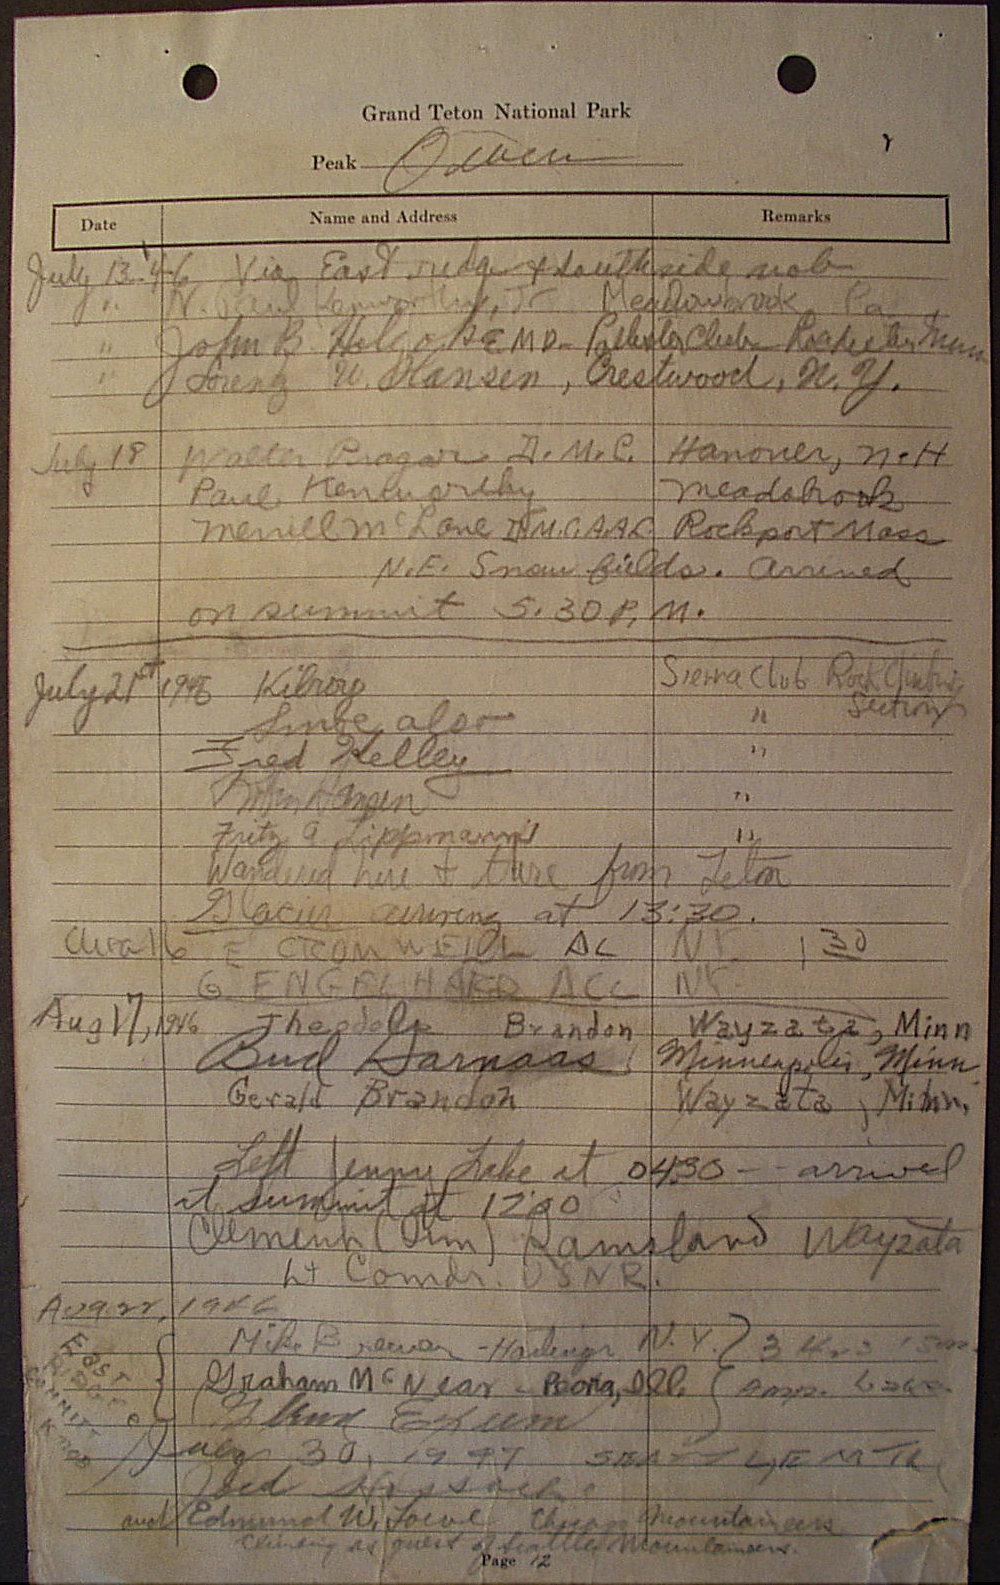 Grand Teton National Park
Peak Owen
Date Name and Address Remarks
July 13 '46 Via East ridge & south side
" N. Paul Kenworthy, Jr. Meadowbrook Pa
" John B. M.D. Club
" Lorenz H. Hansen, Crestwood, N.Y.
July 18 Walter Prager D.M.C. Hanover, N.H
Paul Kenworthy Meadobrook
Merrill McLane D.M.C. A.A.C. Rockport Mass
N.E. Snow fields. Arrived
on summit 5.30 P.M.
July 21st 1946 Kilroy Sierra Club Rock Climbing
Section
also "
Fred Kelley "
Hansen "
Fritz Lippmann "
Wandered here & there from Teton
Glacier arriving at 13:30.
16 E CROMWELL AC NY. 1 30
G ENGELHARD ACC NY.
Aug 17, 1946 Theodore Brandon Wayzata, Minn
Bud Minneapolis, Minn.
Gerald Brandon Wayzata, Minn.
Left Jenny Lake at 0430 -- arrived
at summit at 1200
Clement (Clem) Ramsland Wayzata
Lt Comdr. USNR.
Aug. 22, 1946
EAST
RIDGE
Mike Brewer - N.Y. 3 Hrs
Graham McNear - Peoria, Ill.
Glenn Exum
July 30, 1947
and Edmund W. Lowe Chicago Mountaineers
Climbing as guest of Seattle Mountaineers.
Page 12